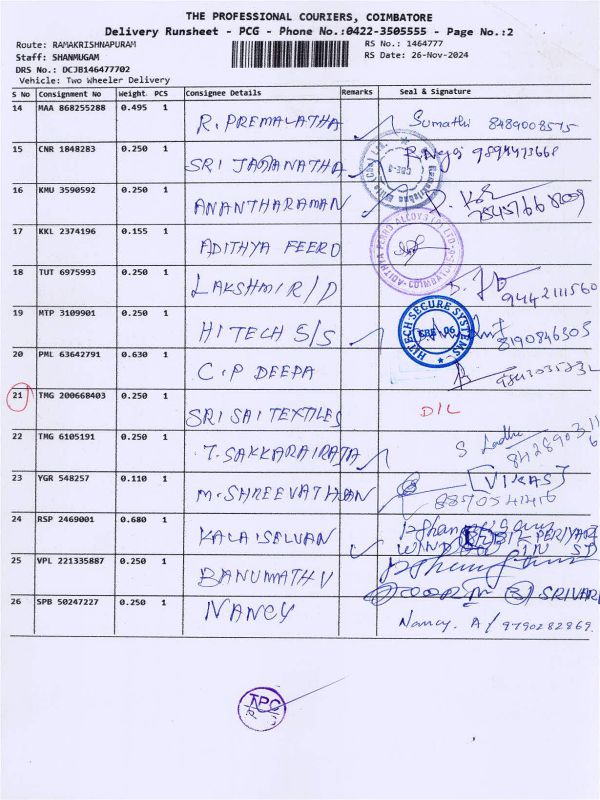 THE PROFESSIONAL COURIERS, COIMBATORE
Delivery Runsheet - PCG - Phone No.:0422-3505555 - Page No.:2
Route: RAMAKRISHNAPURAM RS No.: 1464777
Staff: SHANMUGAM RS Date: 26-Nov-2024
DRS No.: DCJB146477702
Vehicle: Two Wheeler Delivery
S No Consignment No Weight PCS Consignee Details Remarks Seal & Signature
14 MAA 868255288 0.495 1 R. PREMALATHA Sumathi 8489008575
15 CNR 1848283 0.250 1 SRI JAGANATHA
16 KMU 3590592 0.250 1 ANANTHARAMAN
17 KKL 2374196 0.155 1 ADITHYA FEERO
ADITHYA FERRO ALLOYS COIMBATORE
18 TUT 6975993 0.250 1 LAKSHMI R/D 9442111560
19 MTP 3109901 0.250 1 HITECH S/S 8190846305
HITECH SECURE SYSTEMS
CBE - 06
20 PML 63642791 0.630 1 C.P DEEPA
21 TMG 200668403 0.250 1 SRI SAI TEXTILES D/L
22 TMG 6105191 0.250 1 T. SAKKARAIRAJA
23 YGR 548257 0.110 1 M. SHREEVATHSAN [VIKAS]
8870541416
24 RSP 2469001 0.680 1 KALAISELVAN
25 VPL 221335887 0.250 1 BANUMATH V
26 SPB 50247227 0.250 1 NANCY Nancy. A / 9790282869.
TPC